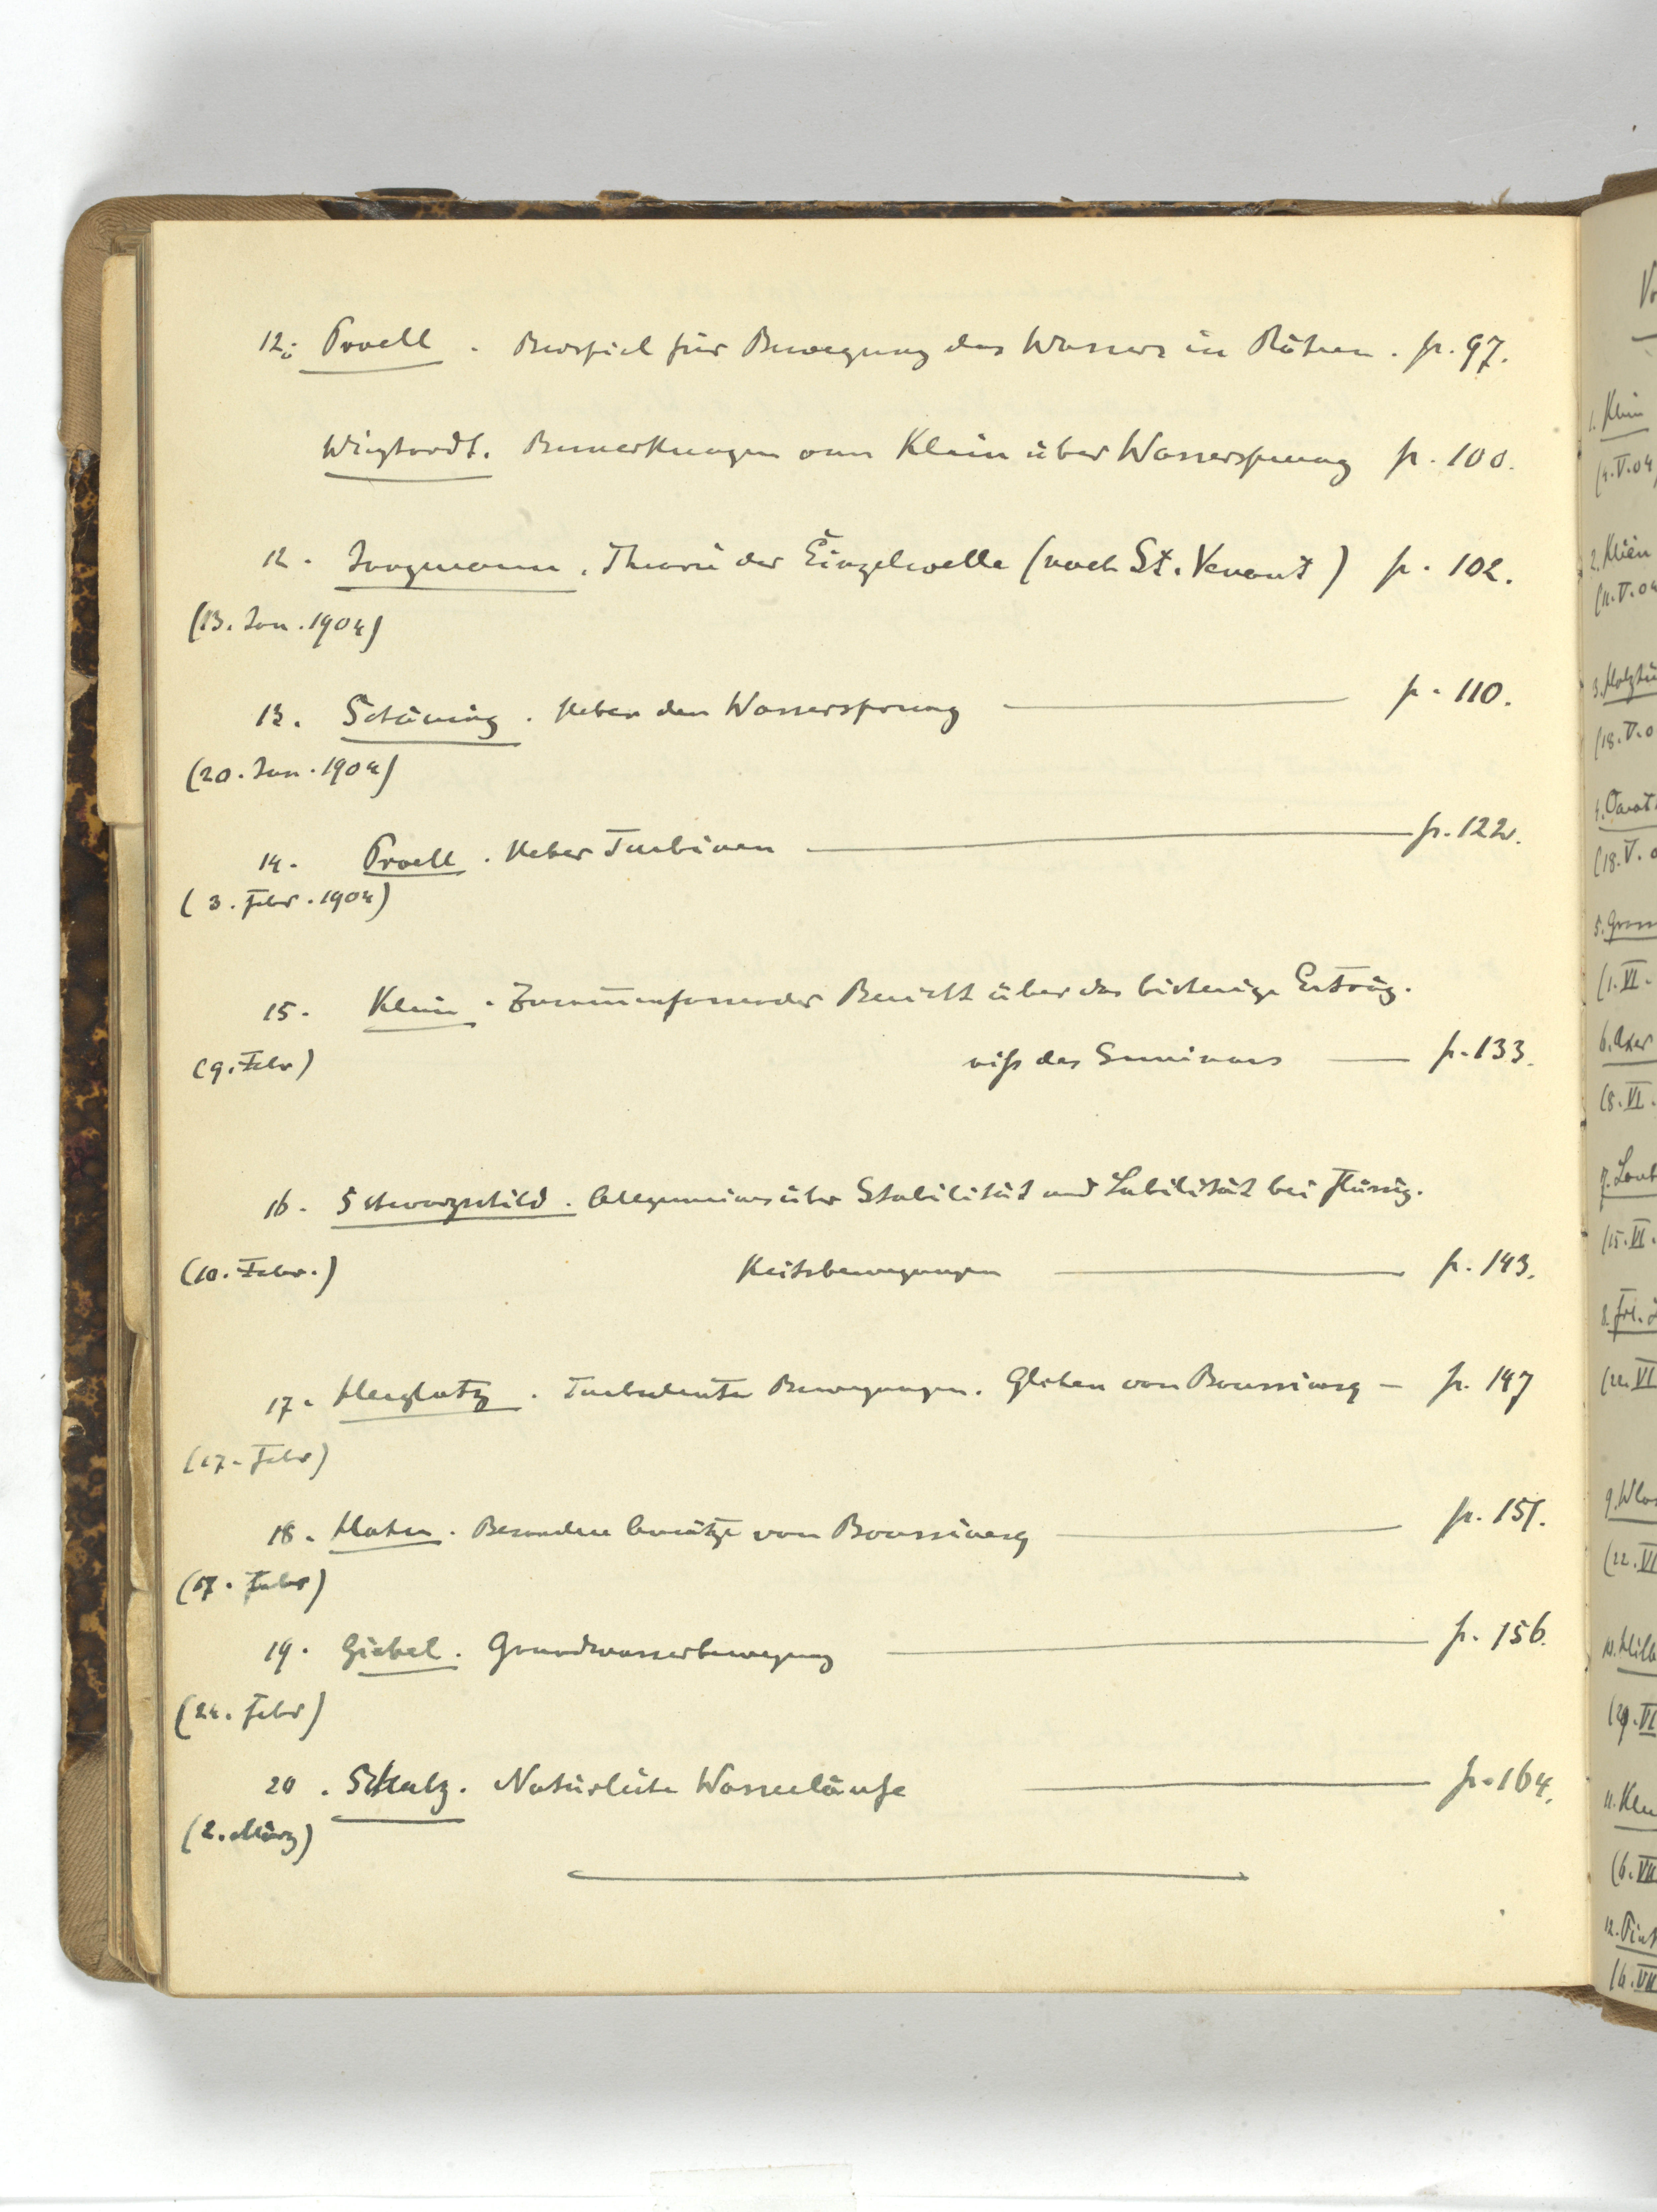 12. Proell. Beispiel für Bewegung des Wassers in Röhren. p. 97.
Wieghardt. Bemerkungen von Klein über Wassersprung p. 100.
12. Jungmann. Theorie der Einzelwelle (nach St. Venant) p. 102.
(13. Jan. 1904)
13. Schüning. Ueber den Wassersprung p. 110.
(20. Jan. 1904)
14. Proell. Ueber Turbinen p. 122.
(3. Febr. 1904)
15. Klein. Zusammenfassender Bericht über das bisherige Erträg-
(9. Febr) niß des Seminars p. 133.
16. Schwarzschild. Allgemeines über Stabilität und Labilität bei Flüssig-
(10. Febr.) keitsbewegungen p. 143.
17. Herglotz. Turbulente Bewegungen. Glchen von Boussinesq – p. 147
(17. Febr)
18. Hahn. Besondere Ansätze von Boussinesq p. 151.
(17. Febr)
19. Giebel. Grundwasserbewegung p. 156.
(24. Febr)
20. Natürliche Wasserläufe p. 164.
(2. März)
1. Klein
(4. V. 04
2. Klein
(11. V. 04
(18. V. 0
(18. V. 0
(1. VI.
(8. VI.
(15. VI.
8. Frl.
(22. VI
(22. VI
(29. VI
(6. VII